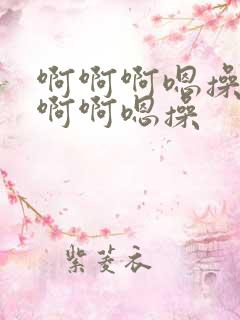 啊啊啊嗯操
啊啊嗯操
紫菱衣